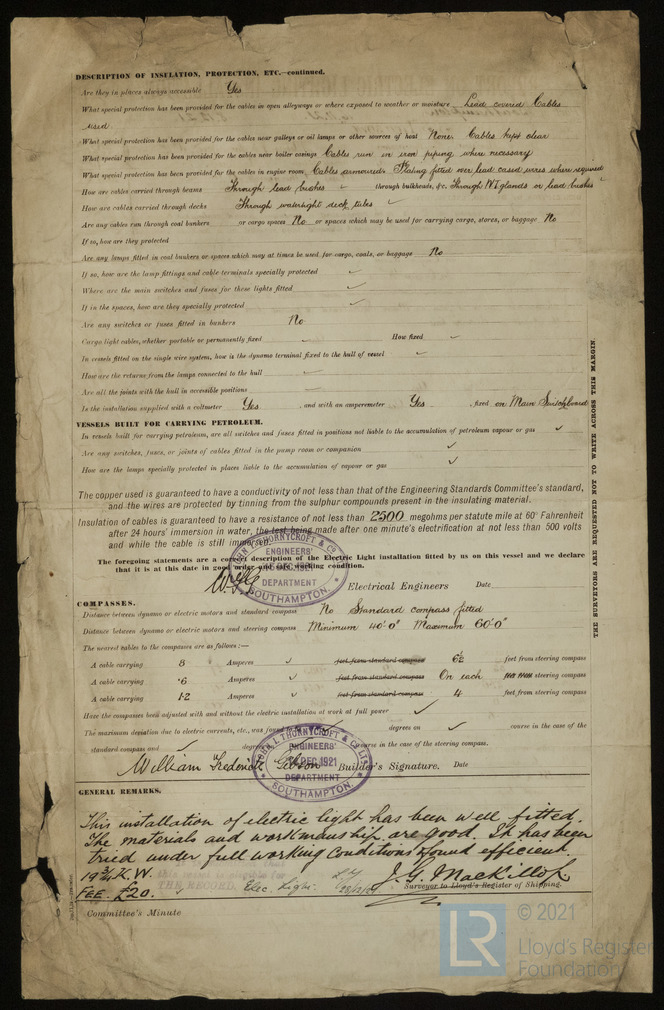 DESCRIPTION OF INSULATION, PROTECTION, ETC.—continued.
Are they in places always accessible Yes
What special protection has been provided for the cables in open alleyways or where exposed to weather or moisture Lead covered Cables
used
What special protection has been provided for the cables near galleys or oil lamps or other sources of heat None. Cables kept clear
What special protection has been provided for the cables near boiler casings Cables run in iron piping where necessary
What special protection has been provided for the cables in engine room Cables armoured. Plating fitted over lead cased wires where required
How are cables carried through beams Through lead bushes through bulkheads, &c. Through W.T. glands or lead bushes
How are cables carried through decks Through watertight deck tubes ✓
Are any cables run through coal bunkers or cargo spaces No or spaces which may be used for carrying cargo, stores, or baggage No
If so, how are they protected
Are any lamps fitted in coal bunkers or spaces which may at times be used for cargo, coals, or baggage No
If so, how are the lamp fittings and cable terminals specially protected ✓
Where are the main switches and fuses for these lights fitted ✓
If in the spaces, how are they specially protected ✓
Are any switches or fuses fitted in bunkers No
Cargo light cables, whether portable or permanently fixed ✓ How fixed ✓
In vessels fitted on the single wire system, how is the dynamo terminal fixed to the hull of vessel ✓
How are the returns from the lamps connected to the hull ✓
Are all the joints with the hull in accessible positions ✓
Is the installation supplied with a voltmeter Yes , and with an amperemeter Yes , fixed on Main Switchboard
VESSELS BUILT FOR CARRYING PETROLEUM.
In vessels built for carrying petroleum, are all switches and fuses fitted in positions not liable to the accumulation of petroleum vapour or gas ✓
Are any switches, fuses, or joints of cables fitted in the pump room or companion ✓
How are the lamps specially protected in places liable to the accumulation of vapour or gas ✓
The copper used is guaranteed to have a conductivity of not less than that of the Engineering Standards Committee's standard,
and the wires are protected by tinning from the sulphur compounds present in the insulating material.
Insulation of cables is guaranteed to have a resistance of not less than 2500 megohms per statute mile at 60° Fahrenheit
after 24 hours' immersion in water, the test being made after one minute's electrification at not less than 500 volts
and while the cable is still immersed.
The foregoing statements are a correct description of the Electric Light installation fitted by us on this vessel and we declare
that it is at this date in good order and safe working condition.
JOHN I. THORNYCROFT & CO. ENGINEERS' DEC. 1921 DEPARTMENT SOUTHAMPTON.
Electrical Engineers Date
COMPASSES.
Distance between dynamo or electric motors and standard compass No Standard compass fitted
Distance between dynamo or electric motors and steering compass Minimum 40'-0" Maximum 60'-0"
The nearest cables to the compasses are as follows:—
A cable carrying 8 Amperes ✓ feet from standard compass 6½ feet from steering compass
A cable carrying ·6 Amperes ✓ feet from standard compass On each feet from steering compass
A cable carrying 1·2 Amperes ✓ feet from standard compass 4 feet from steering compass
Have the compasses been adjusted with and without the electric installation at work at full power ✓
The maximum deviation due to electric currents, etc., was found to be ✓ degrees on ✓ course in the case of the
standard compass and ✓ degrees on course in the case of the steering compass.
JOHN I. THORNYCROFT & CO. LTD. ENGINEERS' DEC 1921 DEPARTMENT SOUTHAMPTON.
William Frederick Gibson Builder's Signature. Date
GENERAL REMARKS.
This installation of electric light has been well fitted.
The materials and workmanship are good. It has been
tried under full working conditions & found efficient.
19¾ K.W. J. G. Mackillop
FEE. £20. ✓ Elec. Light. Surveyor to Lloyd's Register of Shipping.
THE RECORD.
Committee's Minute
THE SURVEYORS ARE REQUESTED NOT TO WRITE ACROSS THIS MARGIN.
LR
© 2021
Lloyd's Register
Foundation